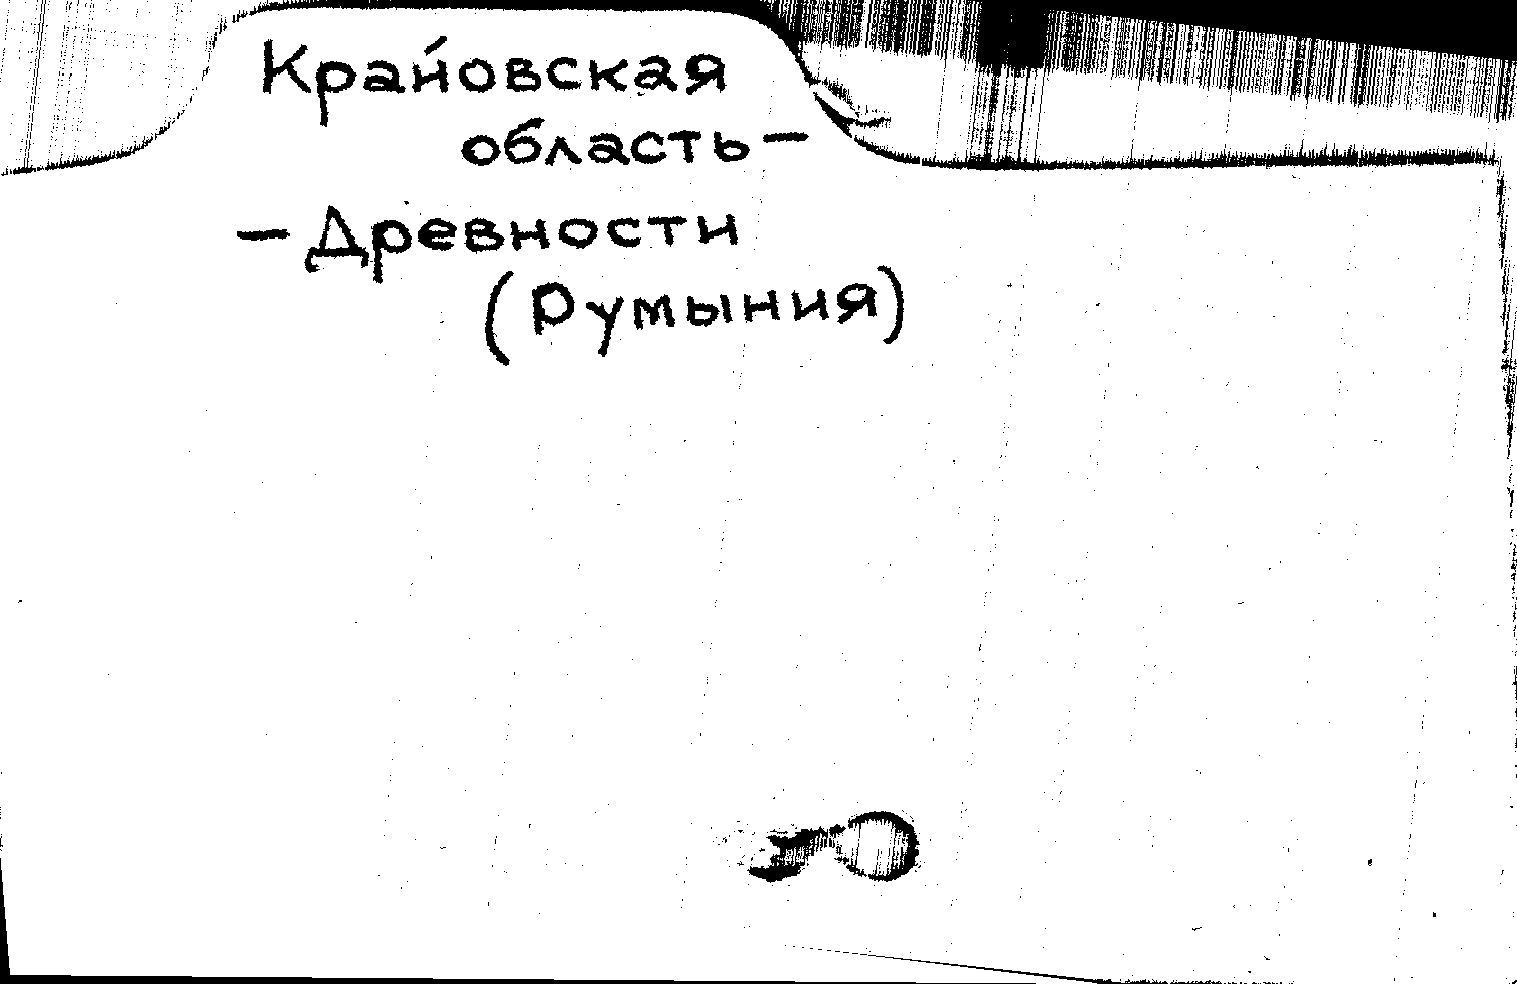 Крайовская
область-
- Древности
(Румыния)